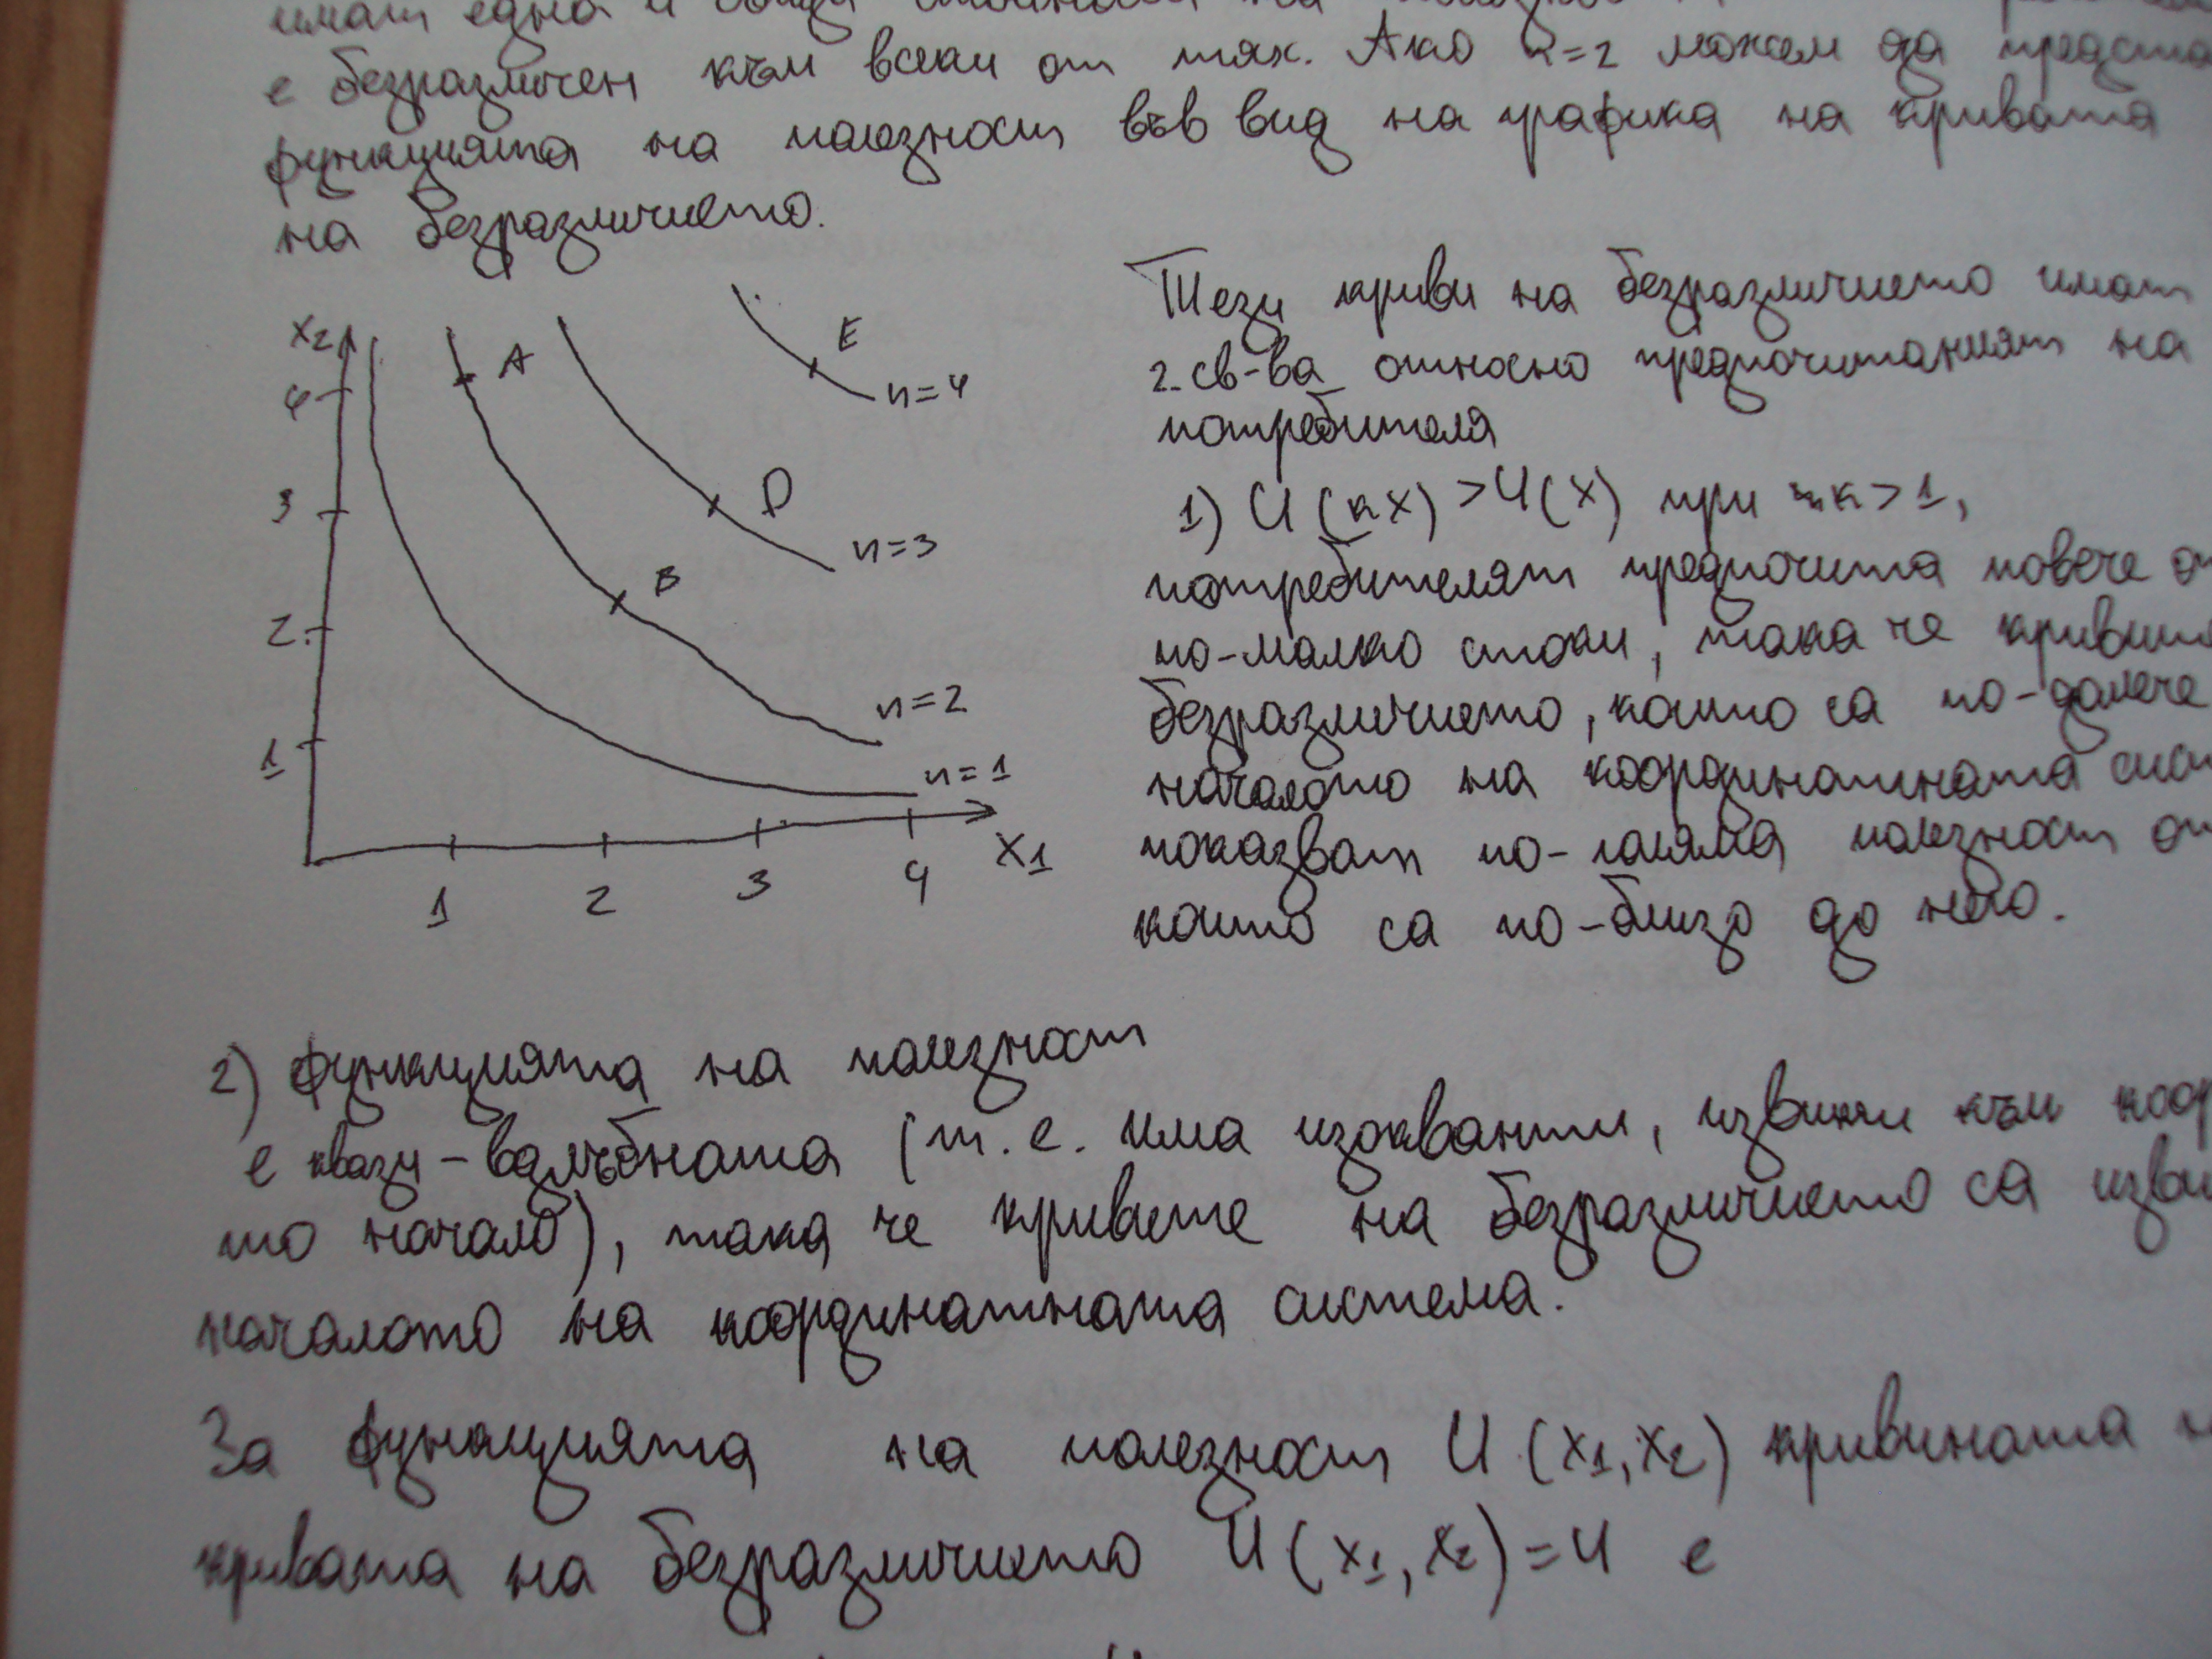 имат една и
е безразличен към всеки от тях. Ако n=2 можем да предста
функцията на полезност във вид на графика на кривата
на безразличието.
x2
4
3
2
1
1
2
3
4
x1
A
B
D
E
u=4
u=3
u=2
u=1
Тези криви на безразличието имат
2 св-ва относно предпочитаният на
потребителя
1) U(kx) > U(x) при k>1,
потребителят предпочита повече от
по-малко стоки, така че кривите
безразличието, които са по-далече
началото на координатната сис
показват по-голяма полезност от
които са по-близо до него.
2) функцията на полезност
е квази-вдлъбната (т.е. има изокванти, извити към коор
то начало), така че кривите на безразличието са изви
началото на координатната система.
За функцията на полезност U(x1,x2) кривината н
кривата на безразличието U(x1,x2)=u е